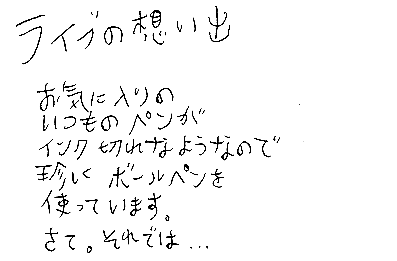 ライブの想い出
お気に入りの
いつものペンが
インク切れなようなので
珍しく ボールペンを
使っています。
さて。それでは...